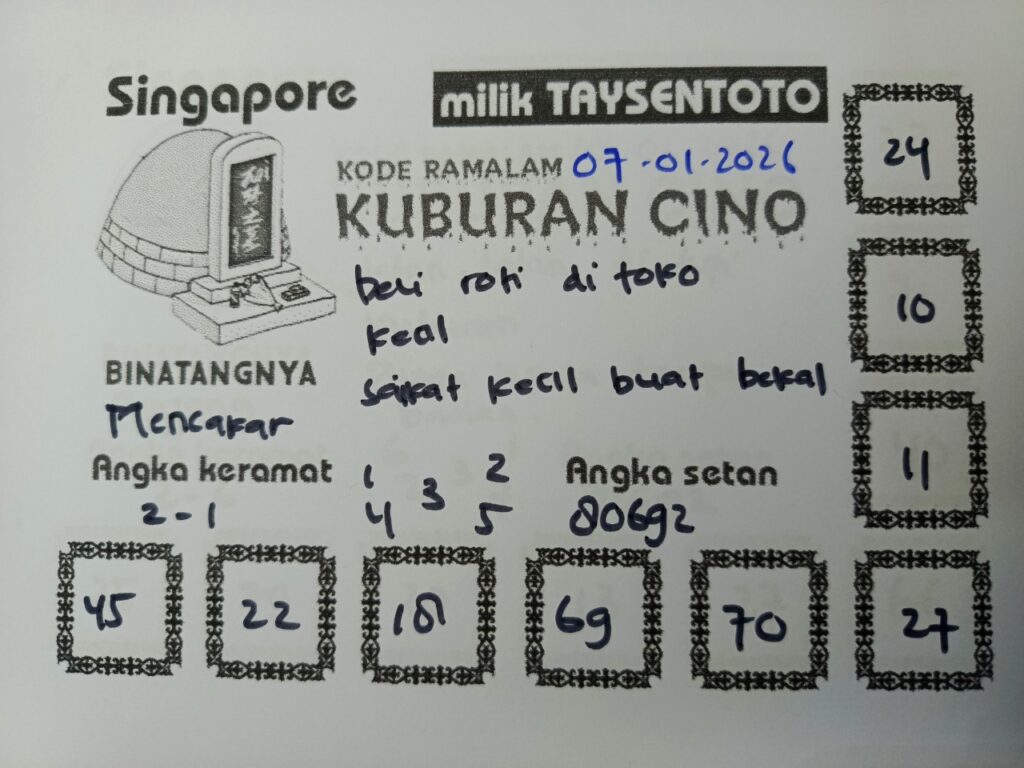 Singapore
milik TAYSENTOTO
KODE RAMALAM 07-01-2026
KUBURAN CINO
beli roti di toko
keal
saikat kecil buat bekal
BINATANGNYA
Mencakar
Angka keramat
2-1
1 2
3
4 5
Angka setan
80692
24
10
11
45 22 18 69 70 27